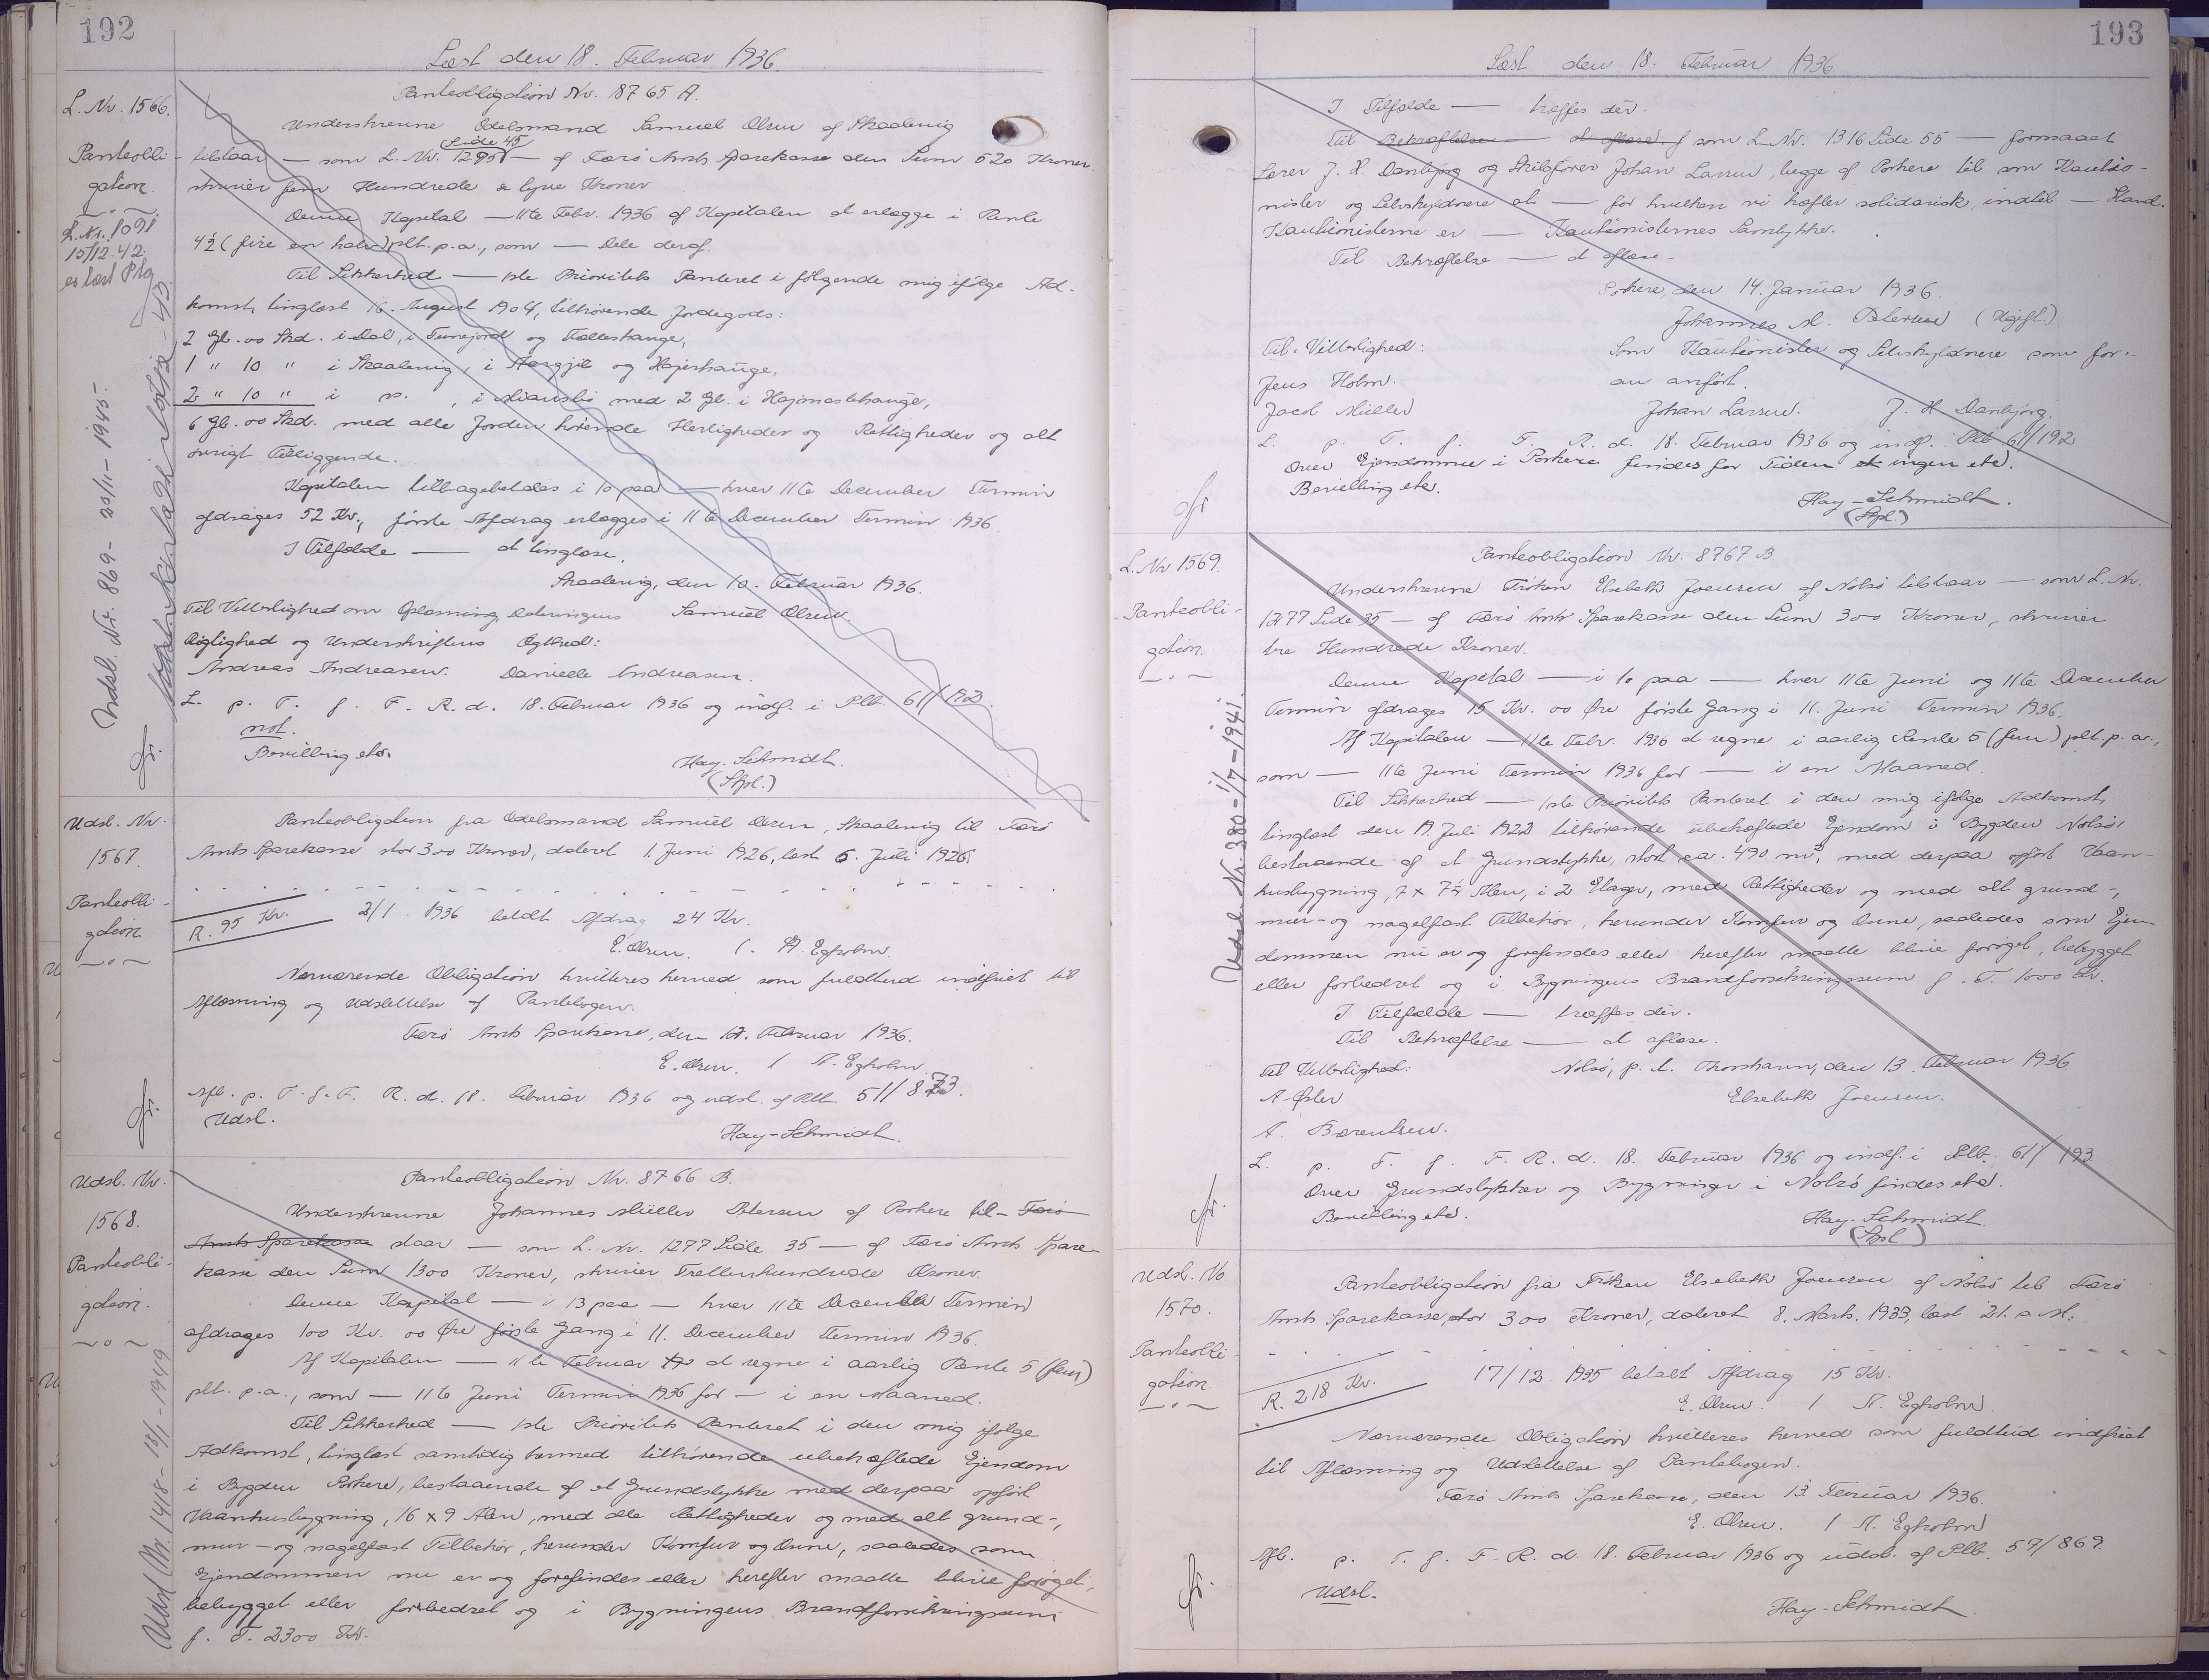 192
Læst den 18. Februar 1936.
L. Nr. 1566.
Panteobli-
gation.
L. Nr. 1091
15/12 42.
er læst Ptg
Udsl. Nr. 869 - 20/11 - 1945.
Panteobligation Nr. 8765 A.
Underskrevne Odelsmand Samuel Olsen af Skaalevig
Side 45
tilstaar — som L. Nr. 1295 — af Færö Amts Sparekasse den Sum 520 Kroner
skriver fem Hundrede & tyve Kroner
Denne Kapital — 11te Febr. 1936 af Kapitalen at erlægge i Rente
4½ (fire en halv) pCt. p.a., som — Dele deraf.
Til Sikkerhed — 1ste Prioritets Panteret i følgende mig ifølge Ad-
komst, tinglæst 16. August 1904, tilhørende Jordegods:
2 Gl. 00 Skd. i Dal, i Tunejord og Fælleshauge,
1 " 10 " i Skaalevig, i Aargjil og Højeshauge,
2 " 10 " i " , i med 2 Gl. i
6 Gl. 00 Skd. med alle Jorden hörende Herligheder og Rettigheder og alt
övrigt Tilliggende.
Kapitalen tilbagebetales i 10 paa — hver 11te December Termin
afdrages 52 Kr., första Afdrag erlægges i 11te December Termin 1936.
I Tilfælde — at tinglæse.
Skaalevig, den 10. Februar 1936.
Til Vitterlighed om Oplæsning, Dateringens Samuel Olsen.
Rigtighed og Underskriftens Ægthed:
Andreas Andreasen. Danielle Andreasen.
L. p. T. f. F. R. d. 18. Februar 1936 og indf. i Plb. 61/192.
not.
Bevilling etc.
Hay-Schmidt.
(Stpl.)
Udsl. Nr.
1567.
Panteobli-
gation
Panteobligation fra Odelsmand Samuel Olsen, Skaalevig til Færö
Amts Sparekasse stor 300 Kroner, dateret 1. Juni 1926, læst 6. Juli 1926.
R. 95 Kr. 2/1. 1936 betalt Afdrag 24 Kr.
E. Olsen. / A. Egholm.
Nærværende Obligation kvitteres herved som fuldtud indfriet til
Aflæsning og Udslettelse af Pantebogen.
Færö Amts Sparekasse, den 12. Februar 1936.
E. Olsen. / A. Egholm.
Afl. p. T. f. F. R. d. 18. Februar 1936 og udsl. af Plb. 51/873.
Udsl.
Hay-Schmidt.
Udsl. Nr.
1568.
Panteobli-
gation.
Udsl. Nr. 1418 - 18/1 - 1949
Panteobligation Nr. 8766 B.
Underskrevne Johannes Müller Petersen af Porkere til- Færö
Amts Sparekasse staar — som L. Nr. 1277 Side 35 — af Færö Amts Spare-
kasse den Sum 1300 Kroner, skriver Trettenhundrede Kroner.
Denne Kapital — i 13 paa — hver 11te December Termin
afdrages 100 Kr. 00 Øre første Gang i 11. December Termin 1936.
Af Kapitalen — 11te Februar at regne i aarlig Rente 5 (fem)
pCt. p.a., som — 11te Juni Termin 1936 for — i en Maaned.
Til Sikkerhed — 1ste Prioritets Panteret i den mig ifølge
Adkomst, tinglæst samtidig hermed tilhörende ubehæftede Ejendom
i Bygden Porkere, bestaaende af et Grundstykke med derpaa opført
Vaanhusbygning, 16 x 9 Alen, med alle Rettigheder og med alt grund-,
mur- og nagelfast Tilbehør, herunder Komfur og Ovne, saaledes som
Ejendommen nu er og forefindes eller herefter maatte blive forøget,
bebygget eller forbedret og i Bygningens Brandforsikringssum
f. T. 2300 Kr.
193
Læst den 18. Februar 1936.
I Tilfælde — træffes dér.
Til Bekræftelse — at aflæse. f som L. Nr. 1316 Side 55 — formaaet
Lærer J. H. Danbjørg og Skibsfører Johan Larsen, begge af Porkere til som Kautio-
nister og Selvskyldnere at — for hvilken vi hæfter solidarisk, indtil — Stand.
Kautionisterne er — Kautionisternes Samtykke.
Til Bekræftelse — at aflæse.
Porkere, den 14. Januar 1936.
Johannes M. Petersen (Ugift.)
Til Vitterlighed: Som Kautionister og Selvskyldnere som for-
Jens Holm. an anført.
Jacob Müller Johan Larsen. J. H. Danbjørg.
L. p. T. f. F. R. d. 18. Februar 1936 og indf. Plb 61/192
Over Ejendomme i Porkere findes for Tiden ingen etc.
Bevilling etc.
Hay-Schmidt.
(Stpl.)
L. Nr 1569.
Panteobli-
gation.
Udsl. Nr. 380 - 1/7 - 1941.
Panteobligation Nr. 8767 B
Underskrevne Fröken Elsebeth Joensen af Nolsö tilstaar — som L. Nr.
1277 Side 35 — af Færö Amts Sparekasse den Sum 300 Kroner, skriver
tre Hundrede Kroner.
Denne Kapital — i 10 paa — hver 11te Juni og 11te December
Termin afdrages 15 Kr. 00 Øre første Gang i 11. Juni Termin 1936.
Af Kapitalen — 11te Febr. 1936 at regne i aarlig Rente 5 (fem) pCt. p.a.,
som — 11te Juni Termin 1936 for — i en Maaned.
Til Sikkerhed — 1ste Prioritets Panteret i den mig ifølge Adkomst,
tinglæst den 19. Juli 1922 tilhörende ubehæftede Ejendom i Bygden Nolsö,
bestaaende af et Grundstykke, stort ca. 490 m², med derpaa opført Vaan-
husbygning, 7 x 7½ Alen, i 2 Etager, med Rettigheder og med alt grund-,
mur- og nagelfast Tilbehør, herunder Komfur og Ovne, saaledes som Ejen-
dommen nu er og forefindes eller herefter maatte blive forøget, bebygget
eller forbedret og i Bygningens Brandforsikringssum f. T. 1000 Kr.
I Tilfælde — træffes dér.
Til Bekræftelse — at aflæse.
Til Vitterlighed: Nolsö, p. t. Thorshavn, den 13. Februar 1936
A. Öster Elsebeth Joensen.
A. Berentsen.
L. p. T. f. F. R. d. 18. Februar 1936 og indf. i Plb. 61/193
Over Grundstykker og Bygninger i Nolsö findes etc.
Bevilling etc.
Hay-Schmidt.
(Stpl.)
Udsl. No
1570.
Panteobli-
gation
Panteobligation fra Fröken Elsebeth Joensen af Nolsö til Færö
Amts Sparekasse, stor 300 Kroner, dateret 8. Marts. 1933, læst 21. s. M.
R. 218 Kr. 17/12. 1935 betalt Afdrag 15 Kr.
E. Olsen. / A. Egholm.
Nærværende Obligation kvitteres herved som fuldtud indfriet
til Aflæsning og Udslettelse af Pantebogen.
Færö Amts Sparekasse, den 13. Februar 1936.
E. Olsen. / A. Egholm
Afl. p. T. f. F. R. d. 18. Februar 1936 og udsl. af Plb. 57/869.
Udsl.
Hay-Schmidt.